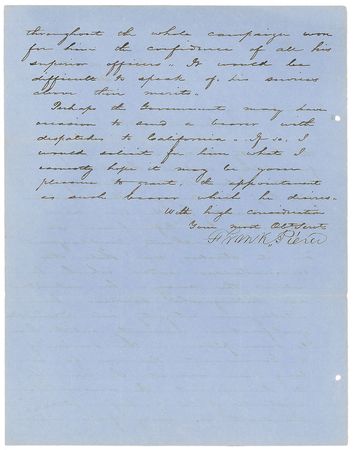 throughout the whole campaign won
for him the confidence of all his
superior officers. It would be
difficult to speak of his services
above their merits.
Perhaps the Government may have
occasion to send a bearer with
dispatches to California. If so, I
would solicit for him what I
earnestly hope it may be your
pleasure to grant, the appointment
as such bearer which he desires.
With high consideration
Your most Obt Servt
Frank. Pierce